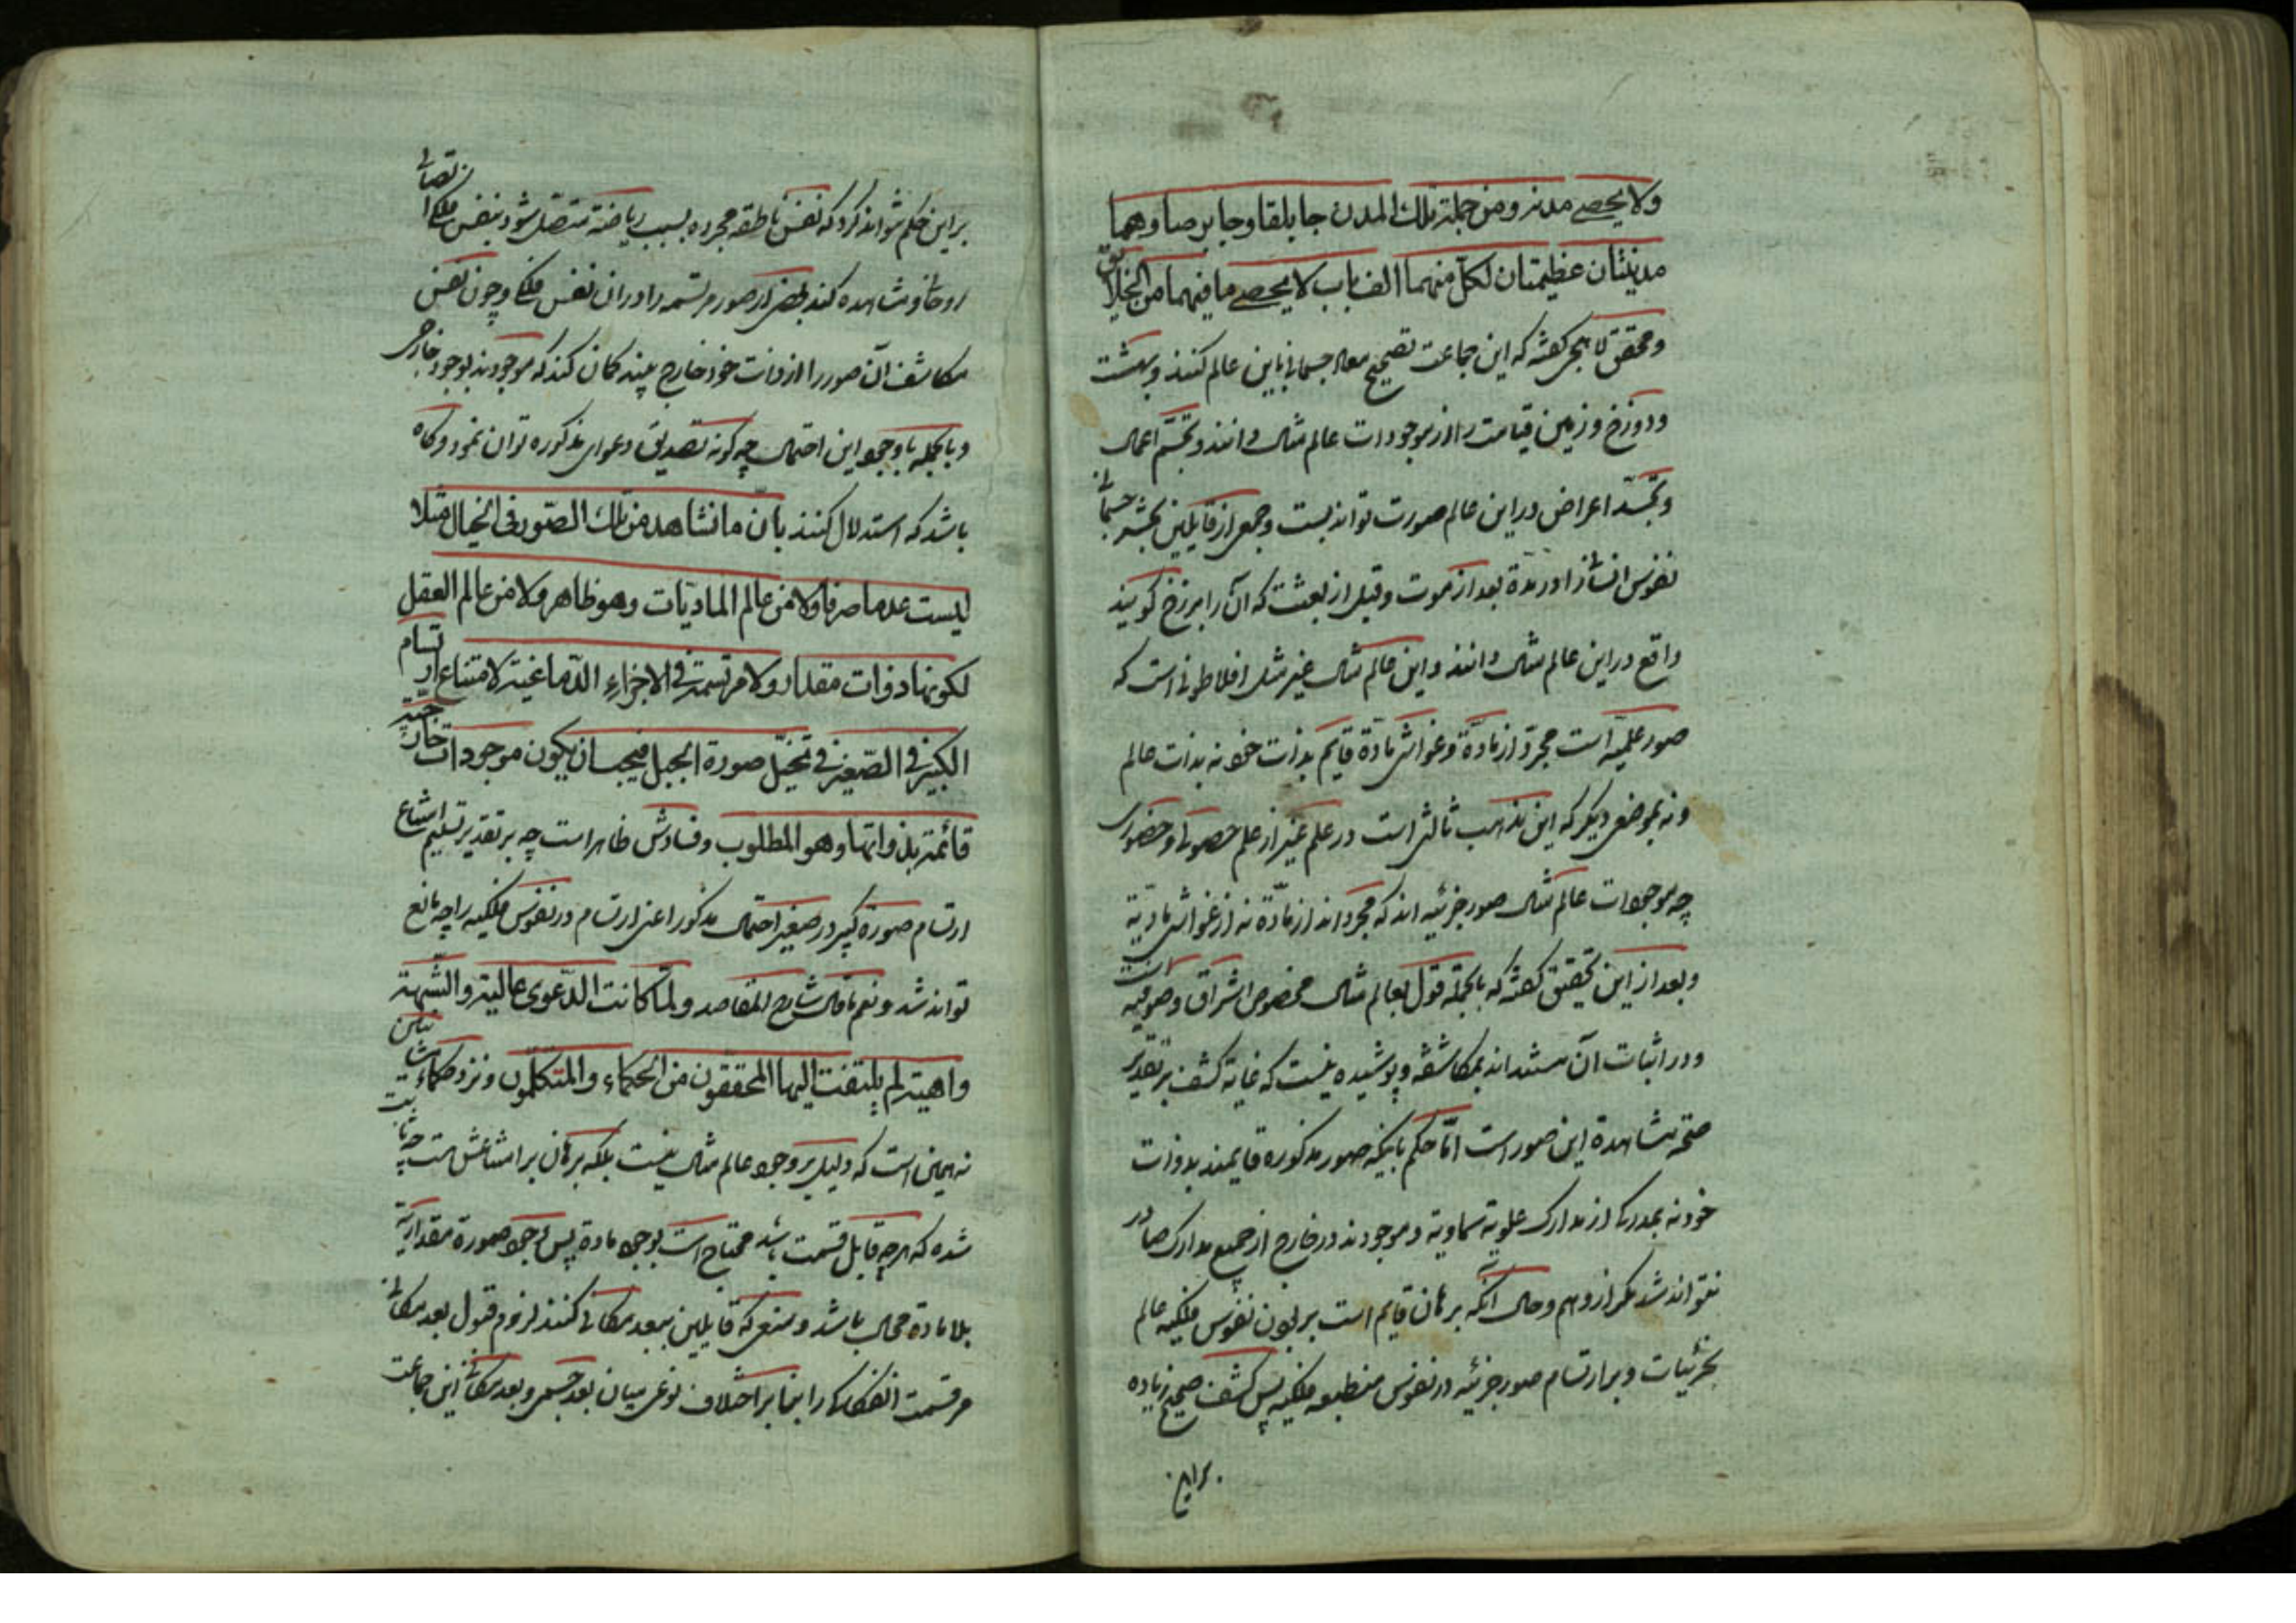 ولا یحصی مدنه ومن جملة تلک المدن جابلقا وجابرصا وهما
مدینتان عظیمتان لکل منهما الف باب لا یحصی ما فیهما من الخلایق
ومحقق لاهجی گفته که این جماعت تصحیح معاد جسمانی باین عالم کنند وبهشت
ودوزخ وزمین قیامت را از موجودات عالم مثال دانند وتجسّم اعمال
وتجسّد اعراض در این عالم صورت تواند بست وجمعی از قایلین بحشر جسمانی
نفوس انسانی را در مدة بعد از موت وقبل از بعثت که آن را برزخ گویند
واقع در این عالم مثال دانند واین عالم مثال غیر مثل افلاطونی است که
صور علمیه است مجرد از مادّة وغواشی مادّة قایم بذات خود نه بذات عالم
ونه بموضعی دیگر که این مذهب ثالثی است در علم غیر از علم حصولی وحضوری
چه موجودات عالم مثال صور جزئیه اند که مجرد اند از مادّة نه از غواشی مادیّة
وبعد از این تحقیق گفته که بالجملة قول بعالم مثال مخصوص اشراق وصوفیه است
ودر اثبات آن مستند اند بمکاشفه وپوشیده نیست که غایة کشف بر تقدیر
صحّة مشاهدة این صور است امّا حکم باینکه صور مذکوره قایمند بذوات
خود نه بمدرکی از مدارک علویة سماویة وموجودند در خارج از جمیع مدارک صادر
نتواند شد مگر از وهم وحال آنکه برهان قایم است بر بودن نفوس فلکیه عالم
بجزئیات وبر ارتسام صور جزئیه در نفوس منطبعه فلکیه پس کشف صحیح زیاده
براین
براین حکم نتواند کرد که نفس ناطقه مجرده بسبب ریاضة متصل شود بنفس فلکی اتصالی
روحانی ومشاهده کند بعضی از صور مرتسمه را در ان نفس فلکی وچون نفس
مکاشف آن صور را از ذات خود خارج بیند گمان کند که موجودند بوجود خارجی
وبالجمله با وجود این احتمال چه گونه تصدیق دعوای مذکوره توان نمود وگاه
باشد که استدلال کنند بانّ ما نشاهد من تلک الصّور فی الخیال مثلا
لیست عدما صرفا ولا من عالم المادیّات وهو ظاهر ولا من عالم العقل
لکونها ذوات مقدار ولا مرتسمة فی الاجزاء الدّماغیة لامتناع ارتسام
الکبیر فی الصّغیر فی تخیّل صورة الجبل فیجب ان یکون موجودات خارجیة
قائمة بذواتها وهو المطلوب وفسادش ظاهر است چه بر تقدیر تسلیم امتناع
ارتسام صورة کبیر در صغیر احتمال مذکور اعنی ارتسام در نفوس فلکیه را چه مانع
تواند شد ونعم ما قال شارح المقاصد ولمّا کانت الدّعوی عالیة والشّبهة
واهیة لم یلتفت الیها المحققون من الحکماء والمتکلّمون ونزد حکماء مشائین
نه همین است که دلیل بر وجود عالم مثال نیست بلکه برهان بر امتناعش هست چه ثابت
شده که هرچه قابل قسمت باشد محتاج است بوجود مادة پس وجود صورة مقداریّة
بلا مادة محال باشد ومنعی که قایلین ببعد مکانی کنند لزوم قبول بعد مکانی
مر قسمت انفکاکی را بنا بر اختلاف نوعی میان بعد جسمی وبعد مکانی این جماعت